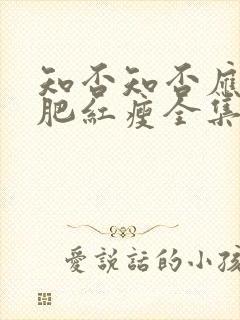 知否知否應
肥紅瘦全集
愛說話的小孩